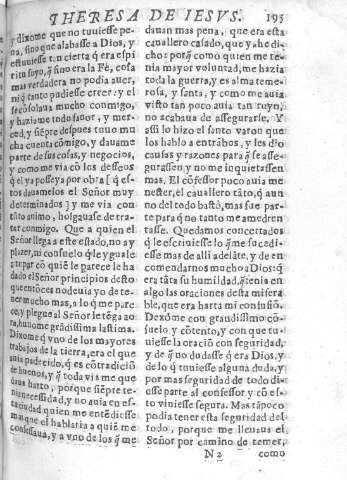 THERESA DE IESVS. 195
y dixome que no tuuiesse pe-
na, sino que alabasse a Dios, y
estuuiesse tã cierta q̃ era espi-
ritu suyo, q̃ sino era la Fè, cosa
mas verdadera no podia auer,
ni q̃ tanto pudiesse creer: y el
se cõsolaua mucho conmigo,
y haziame todo fauor, y mer-
ced, y siẽpre despues tuuo mu
cha cuenta cõmigo, y dauame
parte de sus cosas, y negocios,
y como me via cõ los desseos
q̃ el ya posseya por obra [q̃ es-
tos dauamelos el Señor muy
determinados] y me via con
tãto animo, holgauase de tra-
tar conmigo. Que a quien el
Señor llega a este estado, no ay
plazer, ni consuelo q̃ le yguale
a topar cõ quiẽ le parece le ha
dado el Señor principios desto
que entõces no deuia yo de te-
ner mucho mas, a lo q̃ me pare
ce, y plegue al Señor le tẽga ao-
ra, huuome grãdissima lastima.
Dixome q̃ vno de los mayores
trabajos de la tierra, era el que
auia padecido, q̃ es cõtradiciõ
de buenos, y q̃ toda via me que
daua harto, porque siẽpre te-
nia necessidad, y no auia en es-
ta ciudad quien me entẽdiesse
mas que el hablaria a quien me
confessaua, y a vno de los q̃ me
dauan mas pena, que era este
cauallero casado, que ya he di-
cho: porq̃ como quien me te-
nia mayor voluntad, me hazia
toda la guerra, y es alma teme-
rosa, y santa, y como me auia
visto tan poco auia tan ruyn,
no acabaua de assegurarse. Y
assi lo hizo el santo varon que
los hablo a entrãbos, y les dio
causas y razones para q̃ se asse-
gurassen, y no me inquietassen
mas. El cõfessor poco auia me-
nester, el cauallero tãto, q̃ aun
no del todo bastò, mas fue par-
te para q̃ no tanto me amedren
tasse. Quedamos concertados
q̃ le escriuiesse lo q̃ me sucedi-
esse mas de alli adelãte, y de en
comendarnos mucho a Dios: q̃
era tãta su humildad, q̃ tenia en
algo las oraciones desta misera
ble, que era harta mi confusiõ.
Dexòme con grandissimo cõ-
suelo, y cõtento, y con que tu-
uiesse la oraciõ con seguridad,
y de q̃ no dudasse q̃ era Dios, y
de lo q̃ tuuiesse alguna duda, y
por mas seguridad de todo di-
esse parte al confessor y cõ es-
to viniesse segura. Mas tãpoco
podia tener esta seguridad del
todo, porque me lleuaua el
Señor por camino de temer,
N 2 como